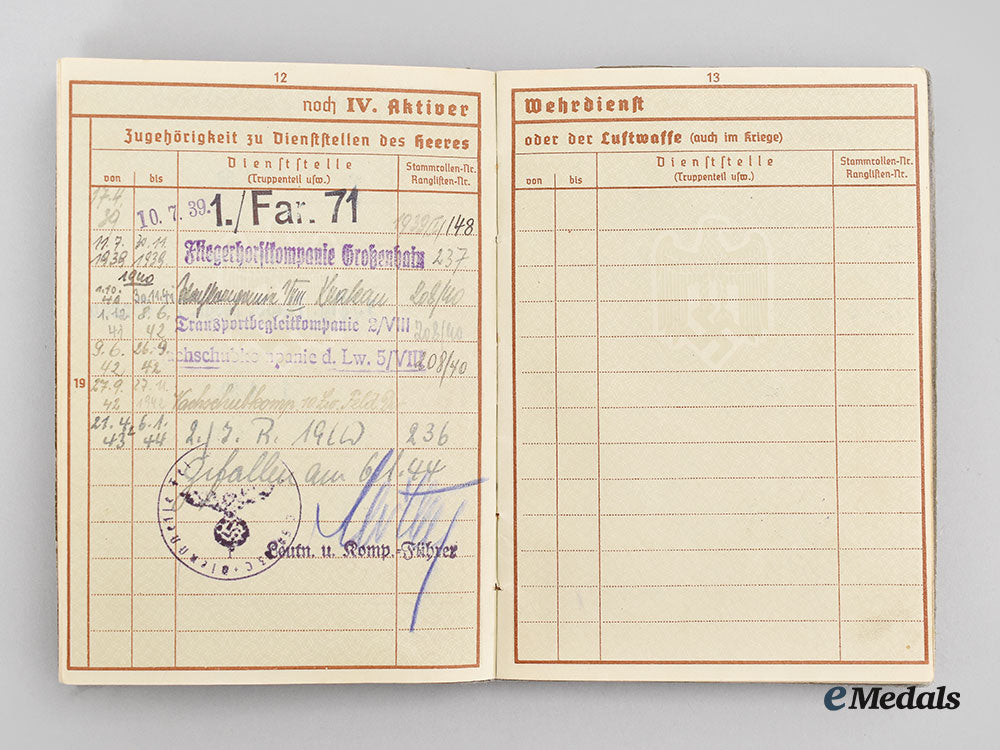 12
noch IV. Aktiver
Zugehörigkeit zu Dienststellen des Heeres
von bis
Dienststelle
(Truppenteil usw.)
Stammrollen-Nr.
Ranglisten-Nr.
17.4.
39
10.7.39. 1./Far. 71 /148
11.7. 30.11.
1939 1939
Fliegerhorstkompanie Großenhain 237
1940
1.10.
40 30.11.41
VIII Krakau 208/40
1.12. 8.6.
41 42
Transportbegleitkompanie 2/VIII 208/40
9.6. 26.9.
42 42
d. Lw. 5/VIII 208/40
19
27.9. 27.11.
42 1942
Nachschubkomp.
21.4. 6.1.
43 44
2./J. R. 19 236
Gefallen am 6.1.44
Leutn. u. Komp.-Führer
13
Wehrdienst
oder der Luftwaffe (auch im Kriege)
von bis
Dienststelle
(Truppenteil usw.)
Stammrollen-Nr.
Ranglisten-Nr.
eMedals